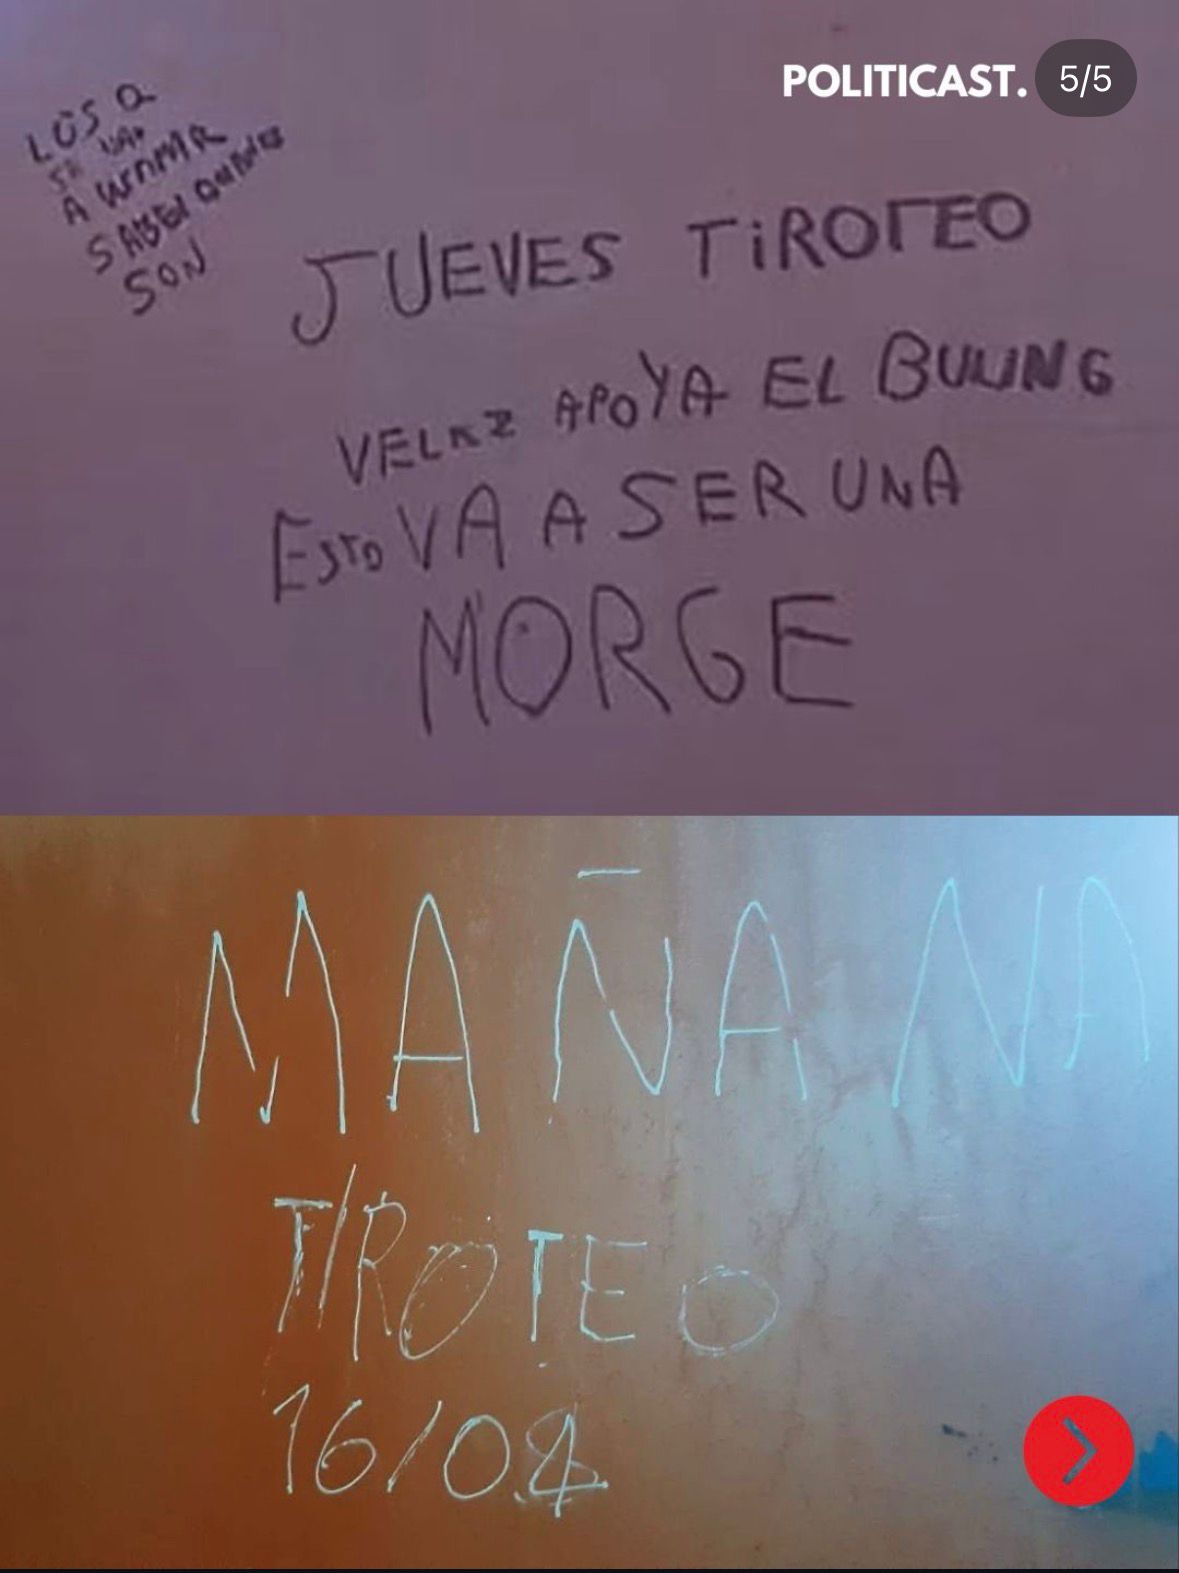 POLITICAST. 5/5
LOS Q
SE VAN
A
SABEN QUIENES
SON
JUEVES TIROTEO
APOYA EL BULING
ESTO VA A SER UNA
MORGE
MAÑANA
TIROTEO
16/04